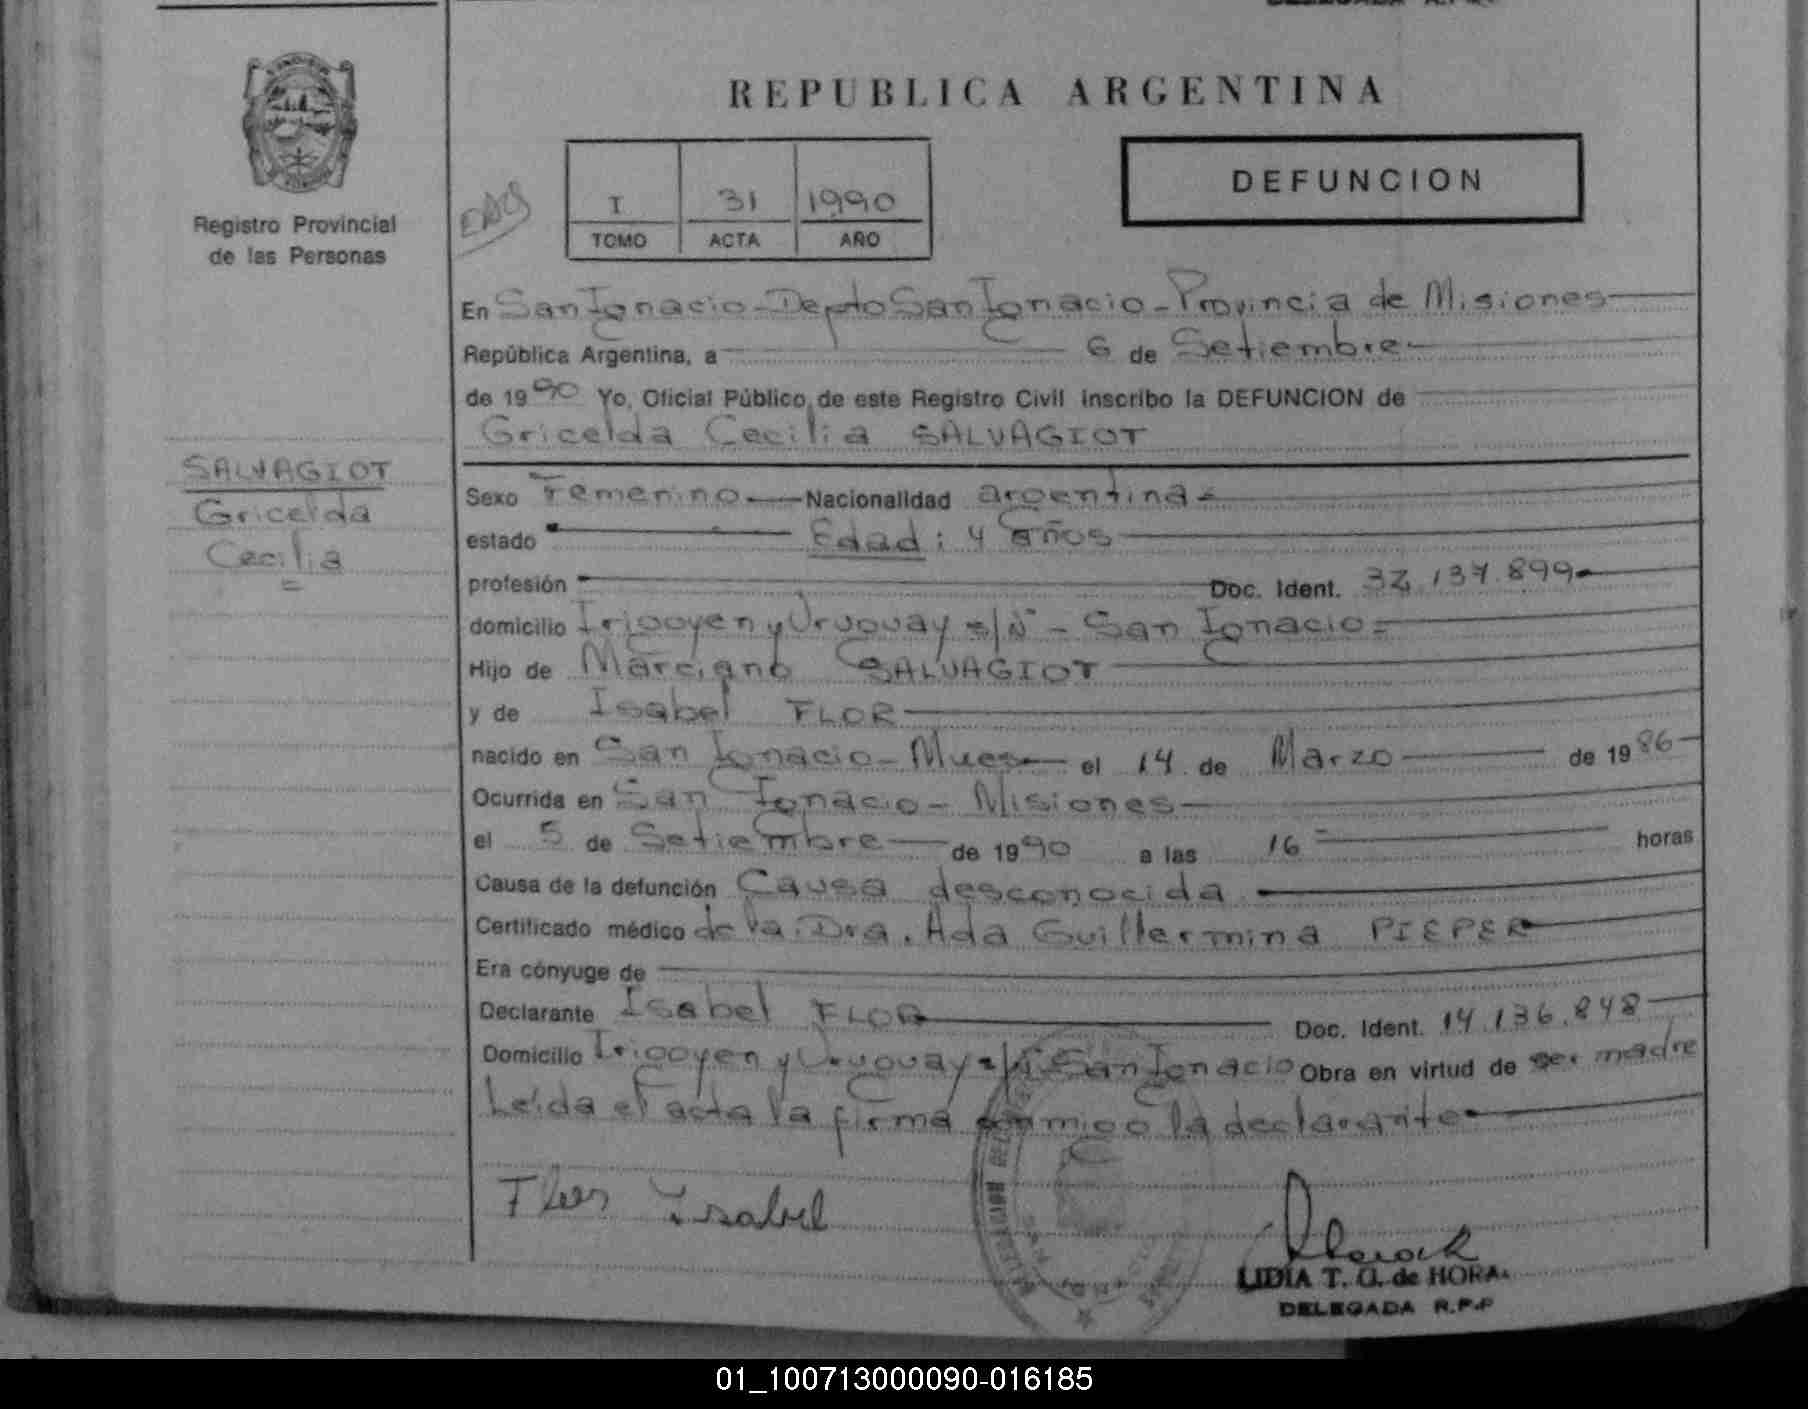 REPUBLICA ARGENTINA
Registro Provincial
de las Personas
I 31 1990
TOMO ACTA AÑO
DEFUNCION
En San Ignacio - Depto San Ignacio - Provincia de Misiones
República Argentina, a 6 de Setiembre
de 1990 Yo, Oficial Público, de este Registro Civil inscribo la DEFUNCION de
Gricelda Cecilia SALVAGIOT
SALVAGIOT
Gricelda
Cecilia
Sexo Femenino Nacionalidad argentina
estado Edad: 4 años
profesión Doc. Ident. 32.137.899
domicilio Irigoyen y Uruguay s/Nº - San Ignacio
Hijo de Marciano SALVAGIOT
y de Isabel FLOR
nacido en San Ignacio - Mnes el 14 de Marzo de 1986
Ocurrida en San Ignacio - Misiones
el 5 de Setiembre de 1990 a las 16 horas
Causa de la defunción Causa desconocida
Certificado médico de la Dra. Ada Guillermina PIEPER
Era cónyuge de
Declarante Isabel FLOR Doc. Ident. 14.136.848
Domicilio Irigoyen y Uruguay s/Nº San Ignacio Obra en virtud de ser madre
Leída el acta la firma conmigo la declarante
Flor Isabel
LIDIA T. G. de HORA
DELEGADA R.P.P
01_100713000090-016185